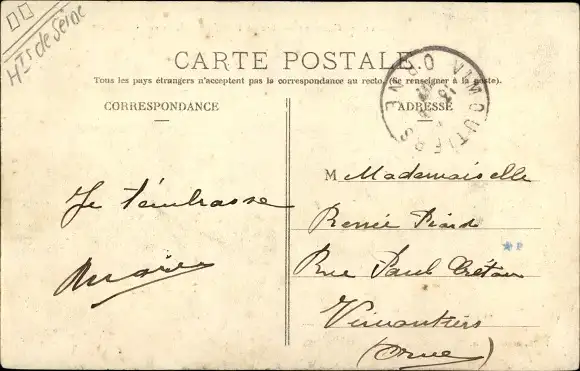 Hts de Seine
CARTE POSTALE
Tous les pays étrangers n'acceptent pas la correspondance au recto. (Se renseigner à la poste).
CORRESPONDANCE
ADRESSE
VIMOUTIERS ORNE
Je t'embrasse
Marie
M Mademoiselle
Renée Piard
Rue Paul Crétau
Vimoutiers
(Orne)